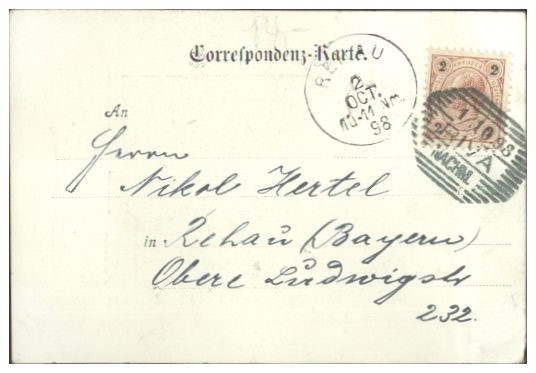 Correspondenz-Karte.
REHAU
2
OCT.
10-11 Nm
98
2 2
1/10 98
RIVA
NACHM.
An
Herrn
Nikol Hertel
in Rehau (Bayern)
Obere Ludwigstr
232.